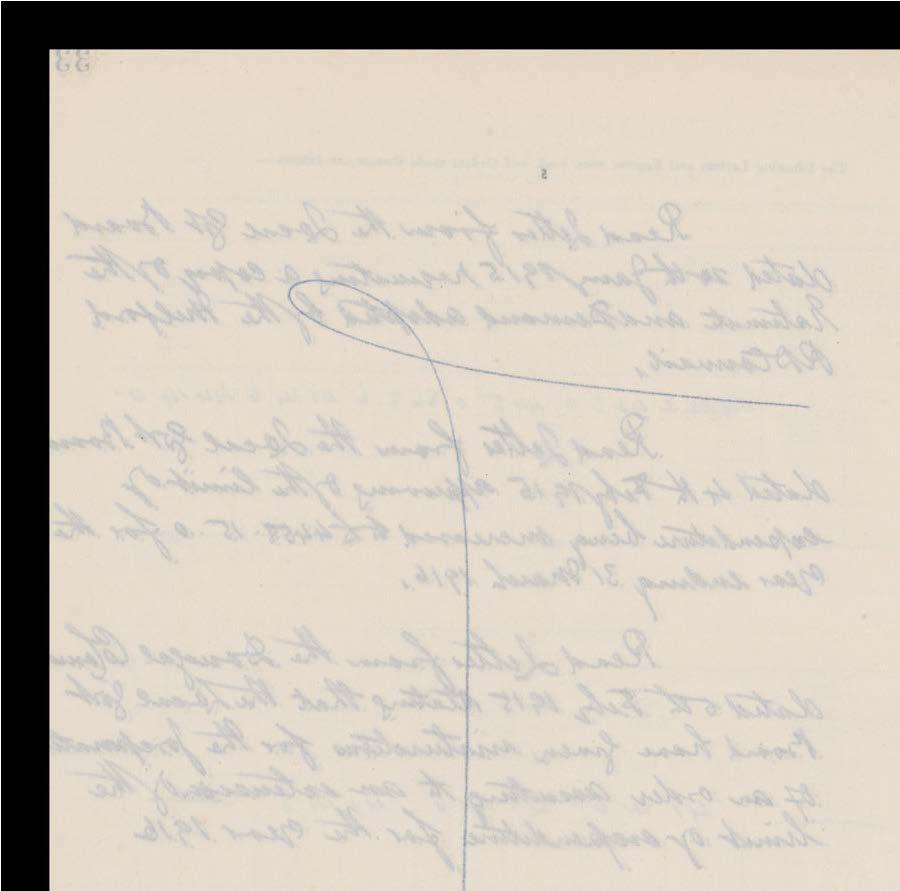 33
The following Letters and Reports were read, and Orders made thereon, as follows:
5
Read Letter from the Local Gvt Board
dated 20th Jany 1915 requesting a copy of the
Estimate and Demand adopted by the Milford
R D Council.
Read Letter from the Local Gvt Board
dated 4th Feby 1915 approving of the limit of
expenditure being increased to £4458. 15. 0 for the
year ending 31 March 1916.
Read Letter from the Donegal
dated 6th Feby 1915 stating that the Local Gvt
Board have given instructions for the
of an order assenting to an extension of the
limit of expenditure for the year 1916